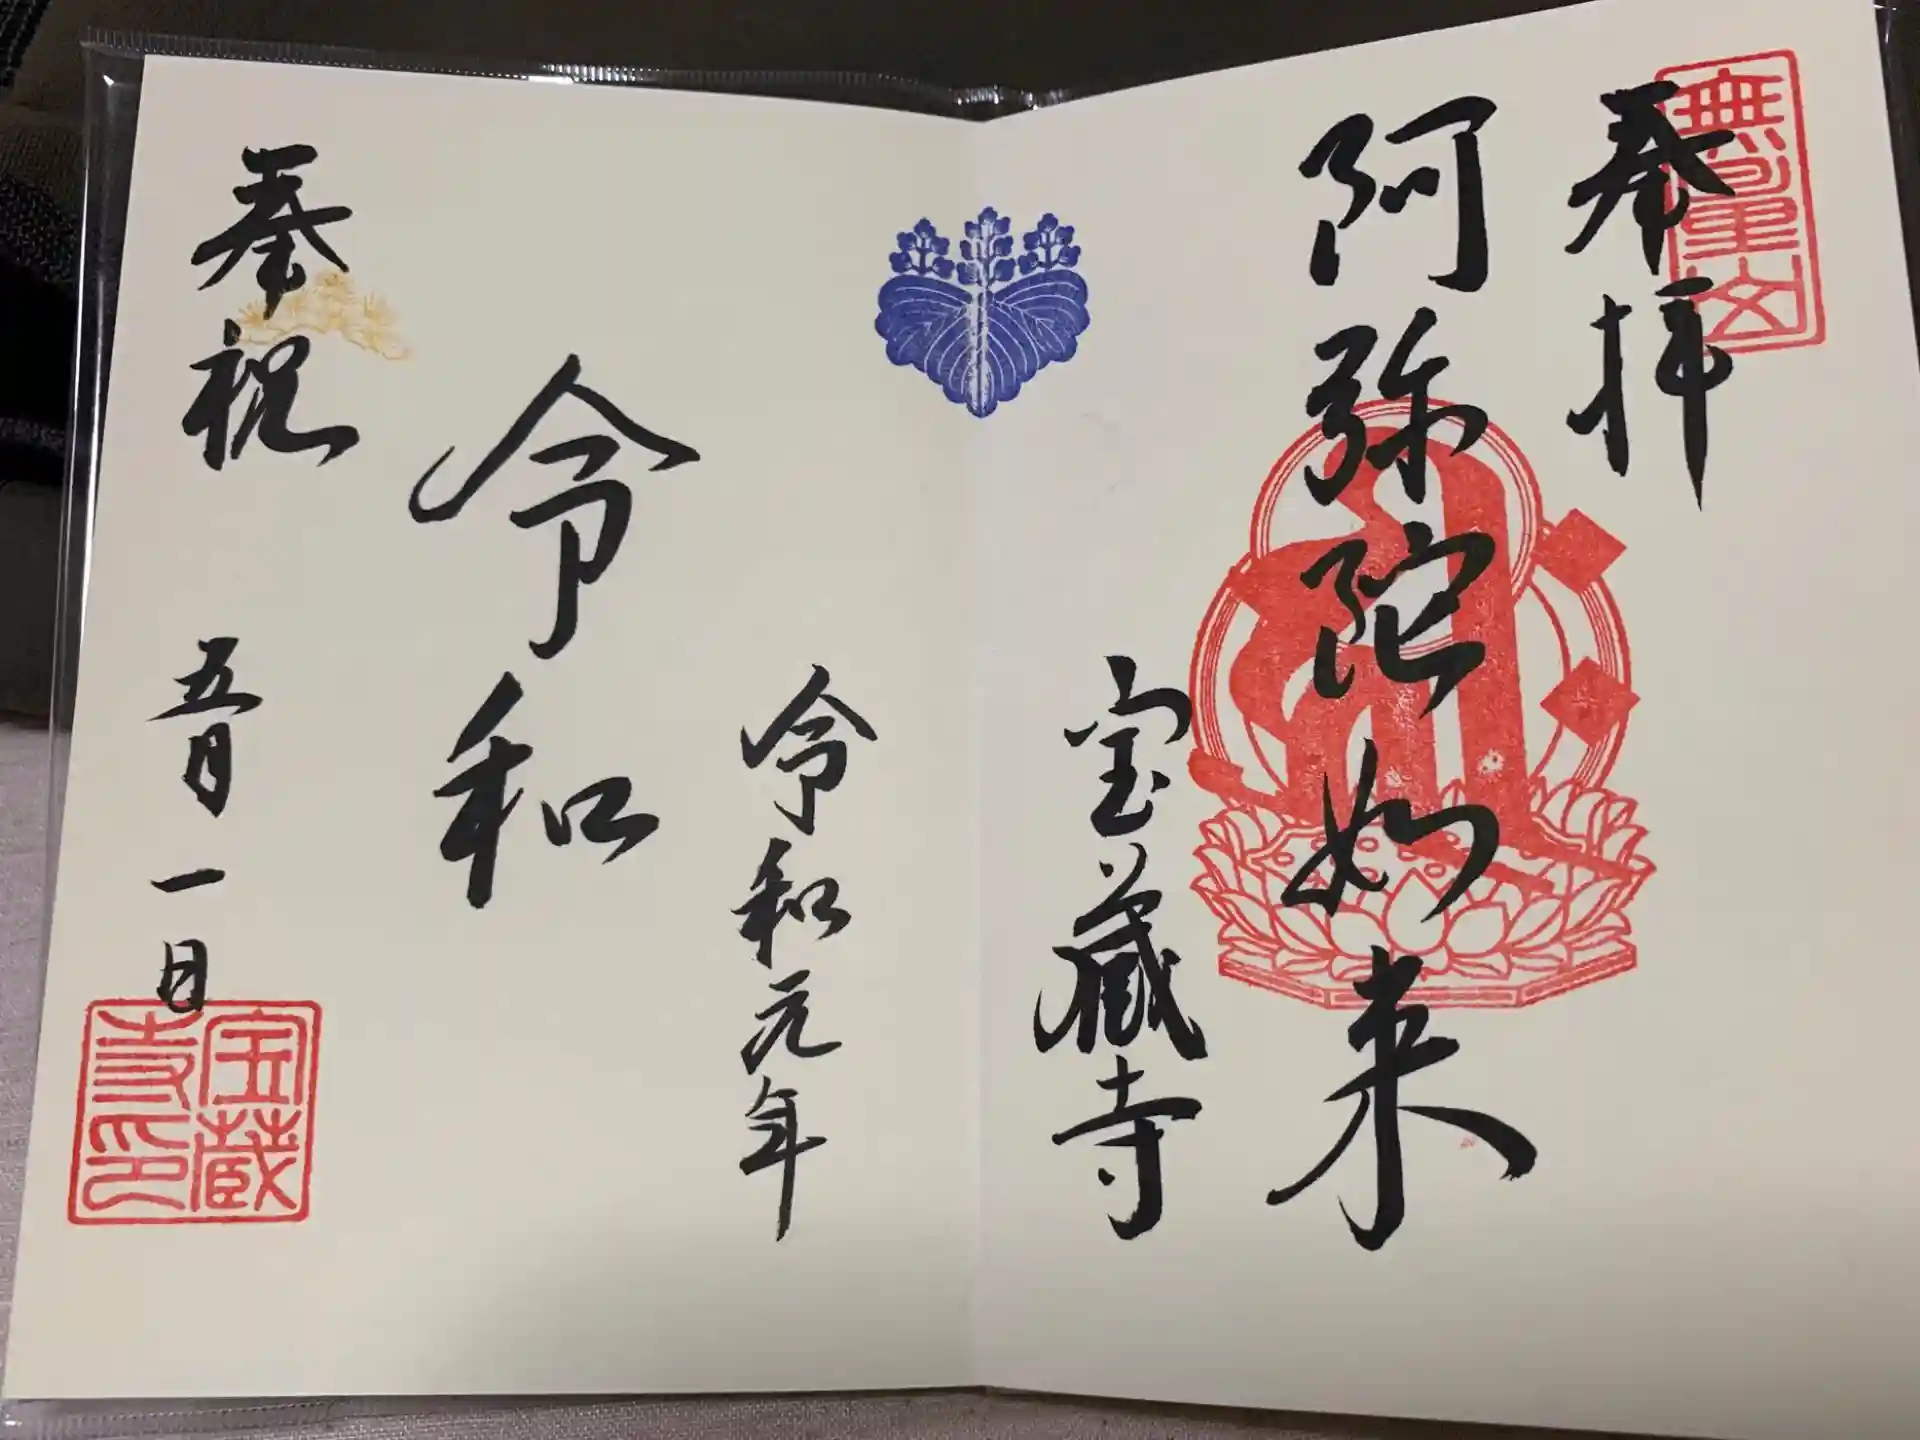 奉拝
無量山
阿弥陀如来
宝蔵寺
令和元年
令和
奉祝
五月一日
宝蔵寺印